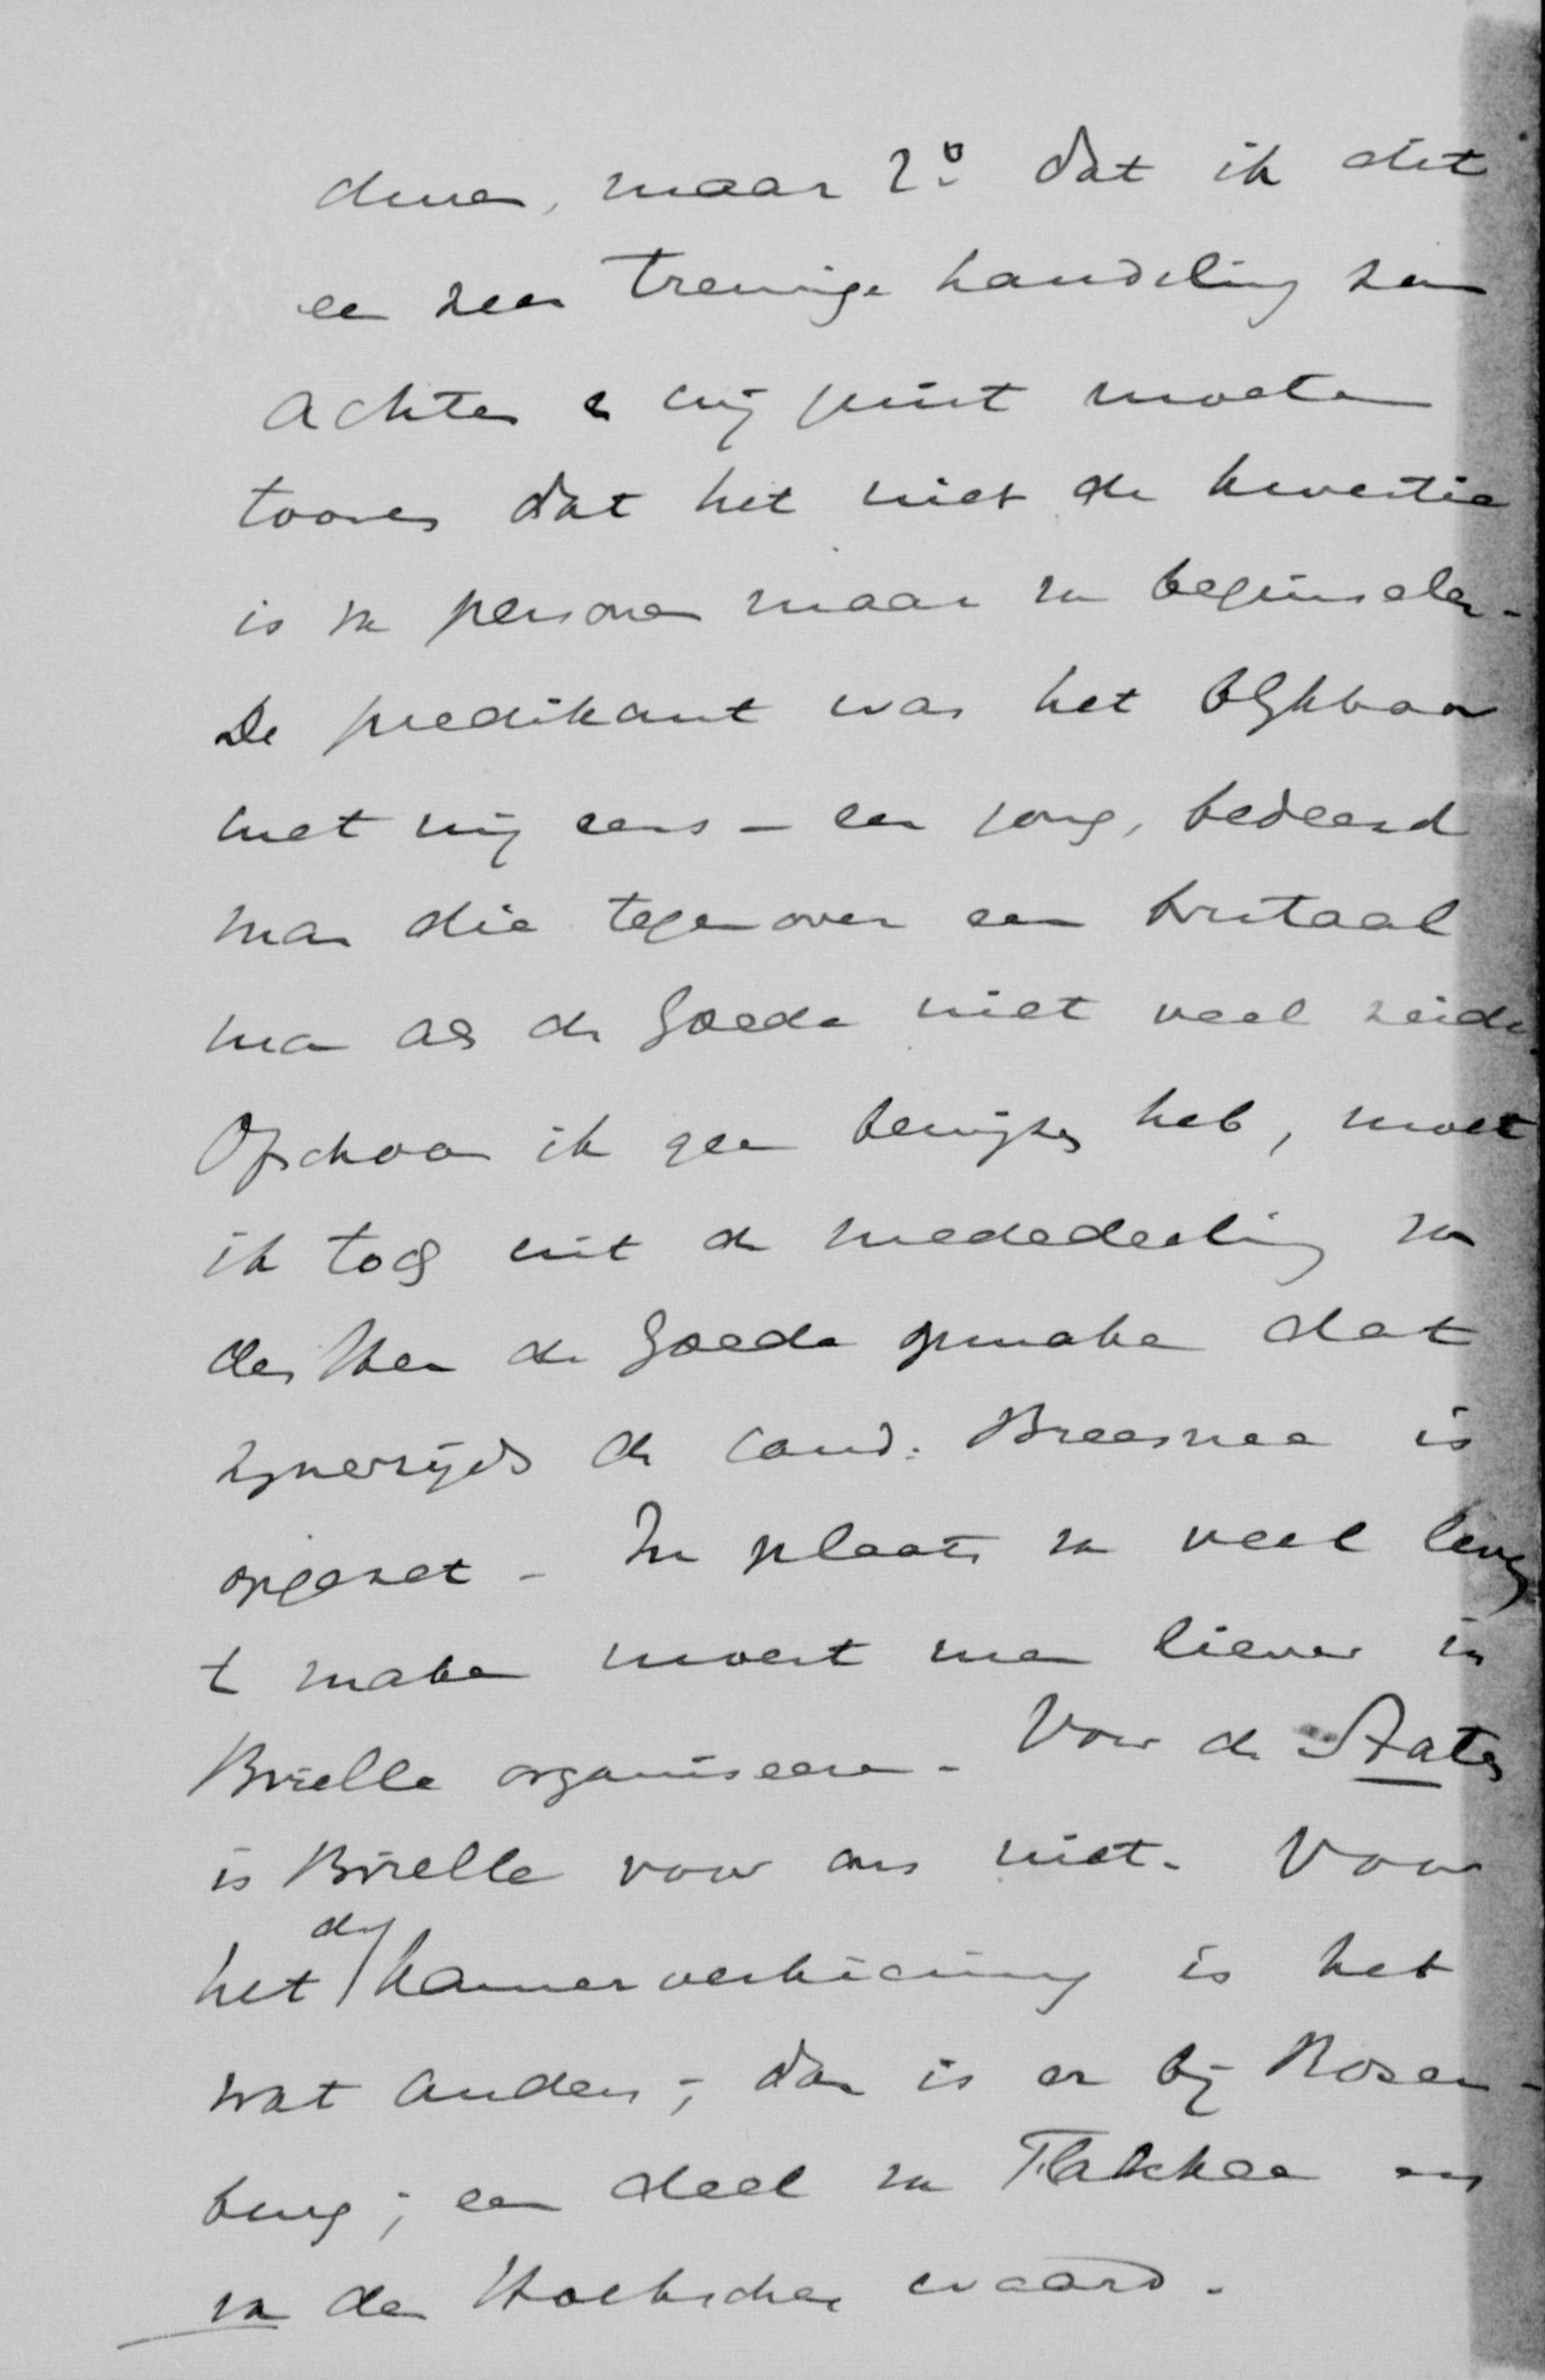 dienen, maar 2º dat ik dit
een zeer treurige handeling zou
achten & wij juist moeten
toonen dat het niet de kwestie
is van personen maar van beginselen -
De predikant was het blijkbaar
met mij eens - een jong, bedeesd
man die tegenover een brutaal
man als de Goede niet veel zeide.
Ofschoon ik geen bewijzen heb, moet
ik toch uit de mededeeling van
den Heer de Goede opmaken dat
zijnerzijds de cand. Breesnee is
opgezet - In plaats van veel leven
te maken moest men liever in
Brielle organiseeren - Voor de Staten
is Brielle voor ons niet. Voor
het de Kamerverkiezing is het
wat anders; dan is er bij Rozen-
burg; een deel van Flakkee en
van den Hoekschen waard.